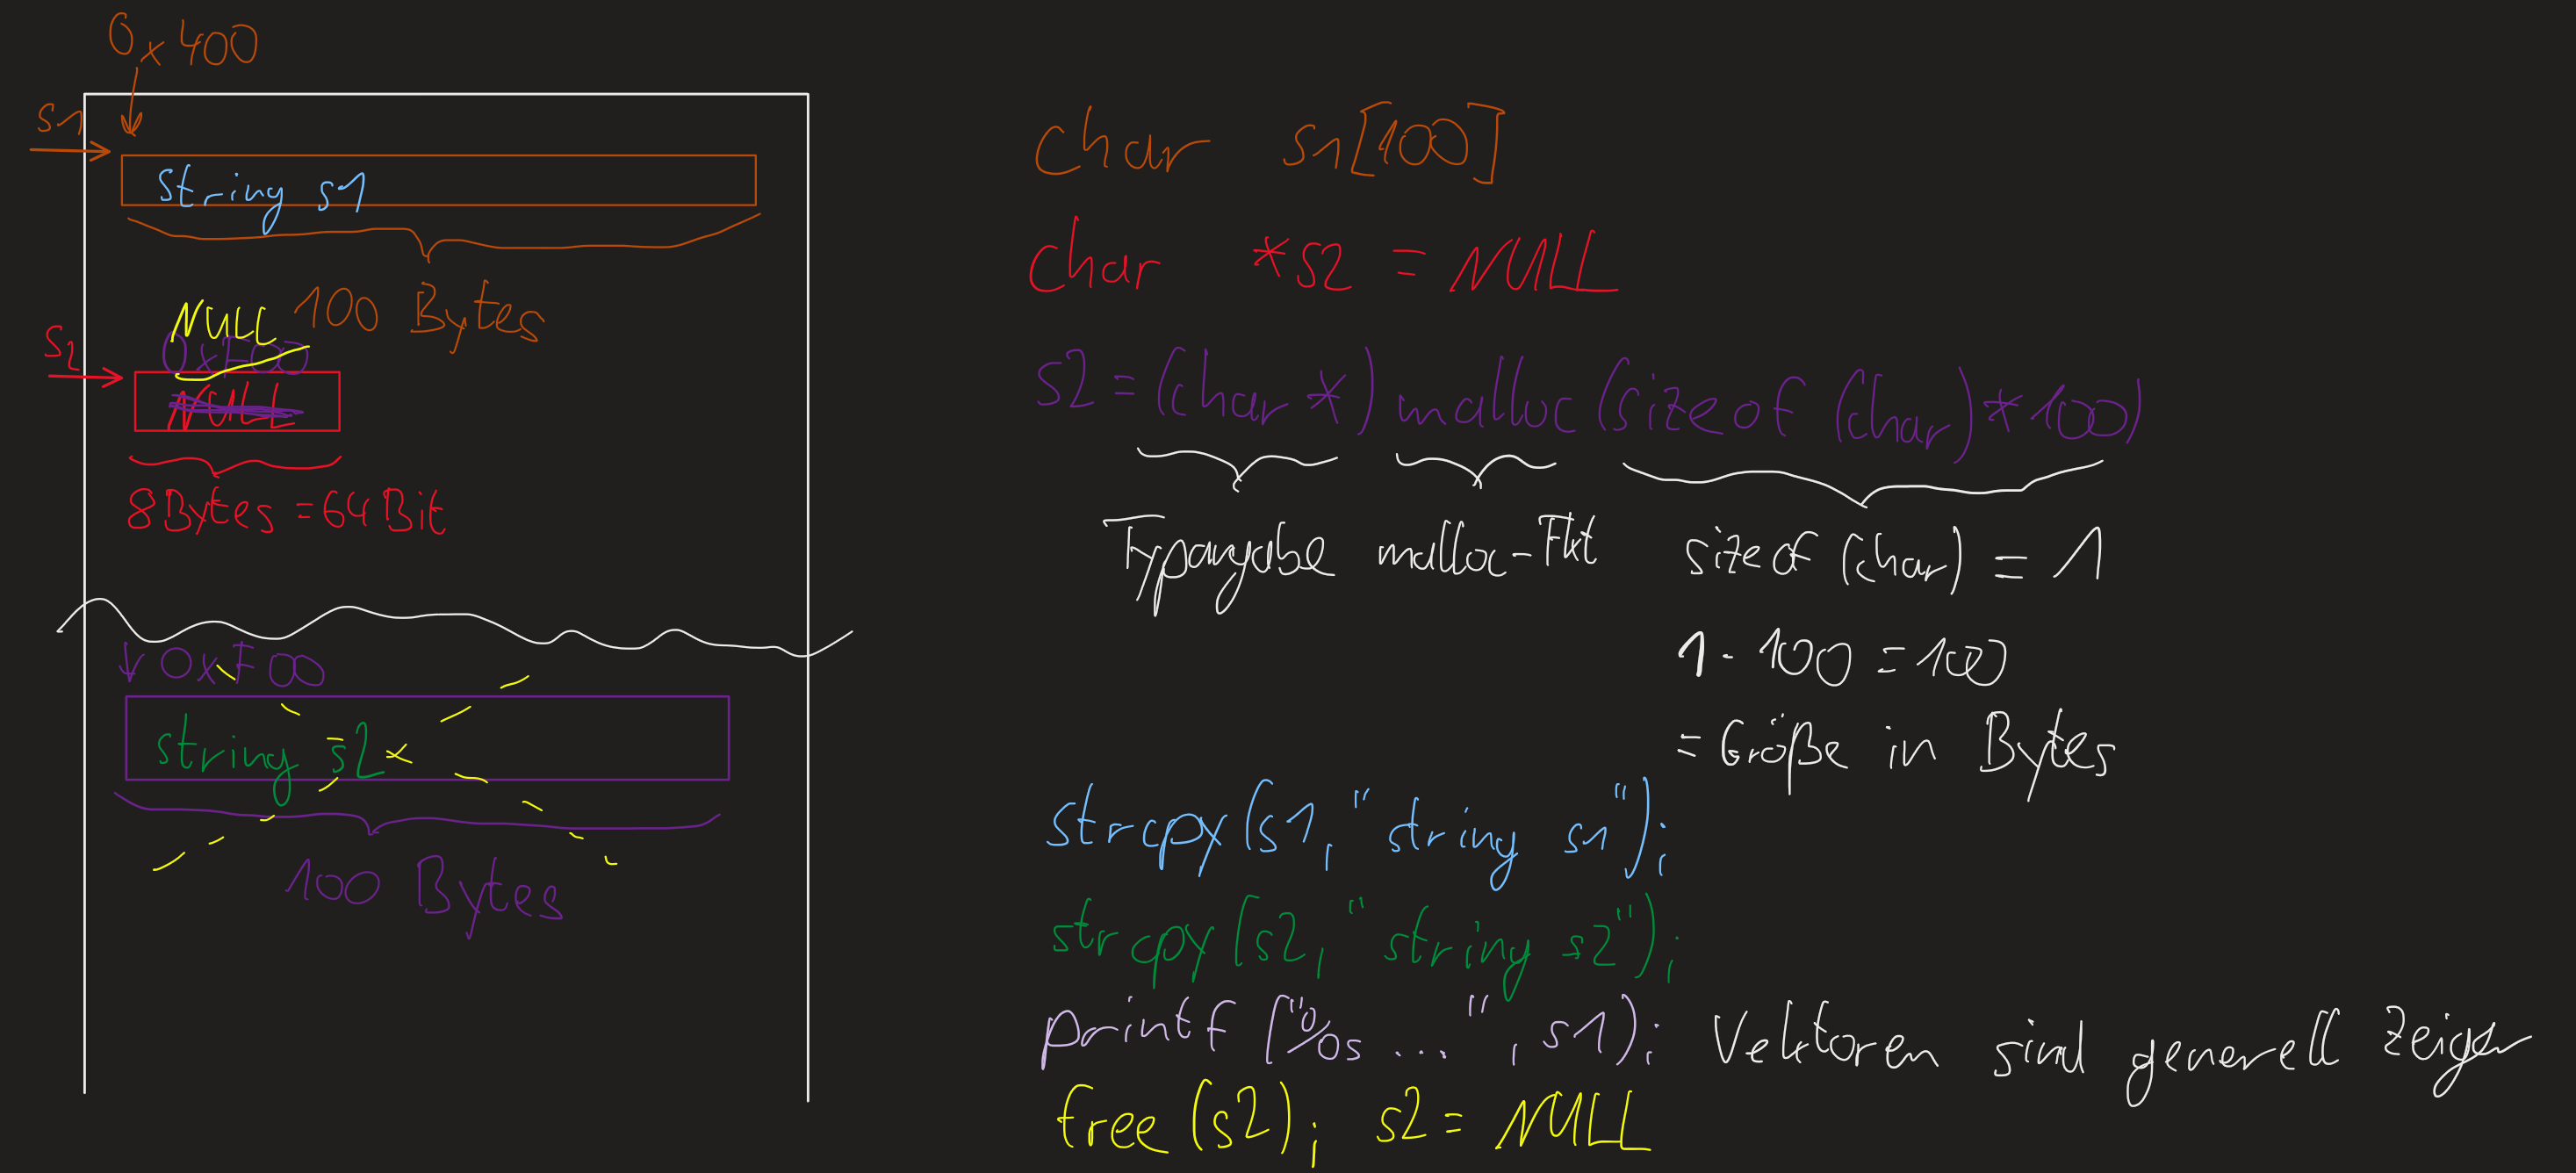 0x400
s1
string s1
100 Bytes
NULL
0xF00
s2
NULL
8 Bytes = 64 Bit
0xF00
string s2
100 Bytes
char s1[100]
char *s2 = NULL
s2 = (char *) malloc (sizeof (char) * 100)
Typangabe malloc-Fkt sizeof (char) = 1
1 · 100 = 100
= Größe in Bytes
strcpy(s1, "string s1");
strcpy(s2, "string s2");
printf ("%s ... ", s1); Vektoren sind generell Zeiger
free (s2); s2 = NULL